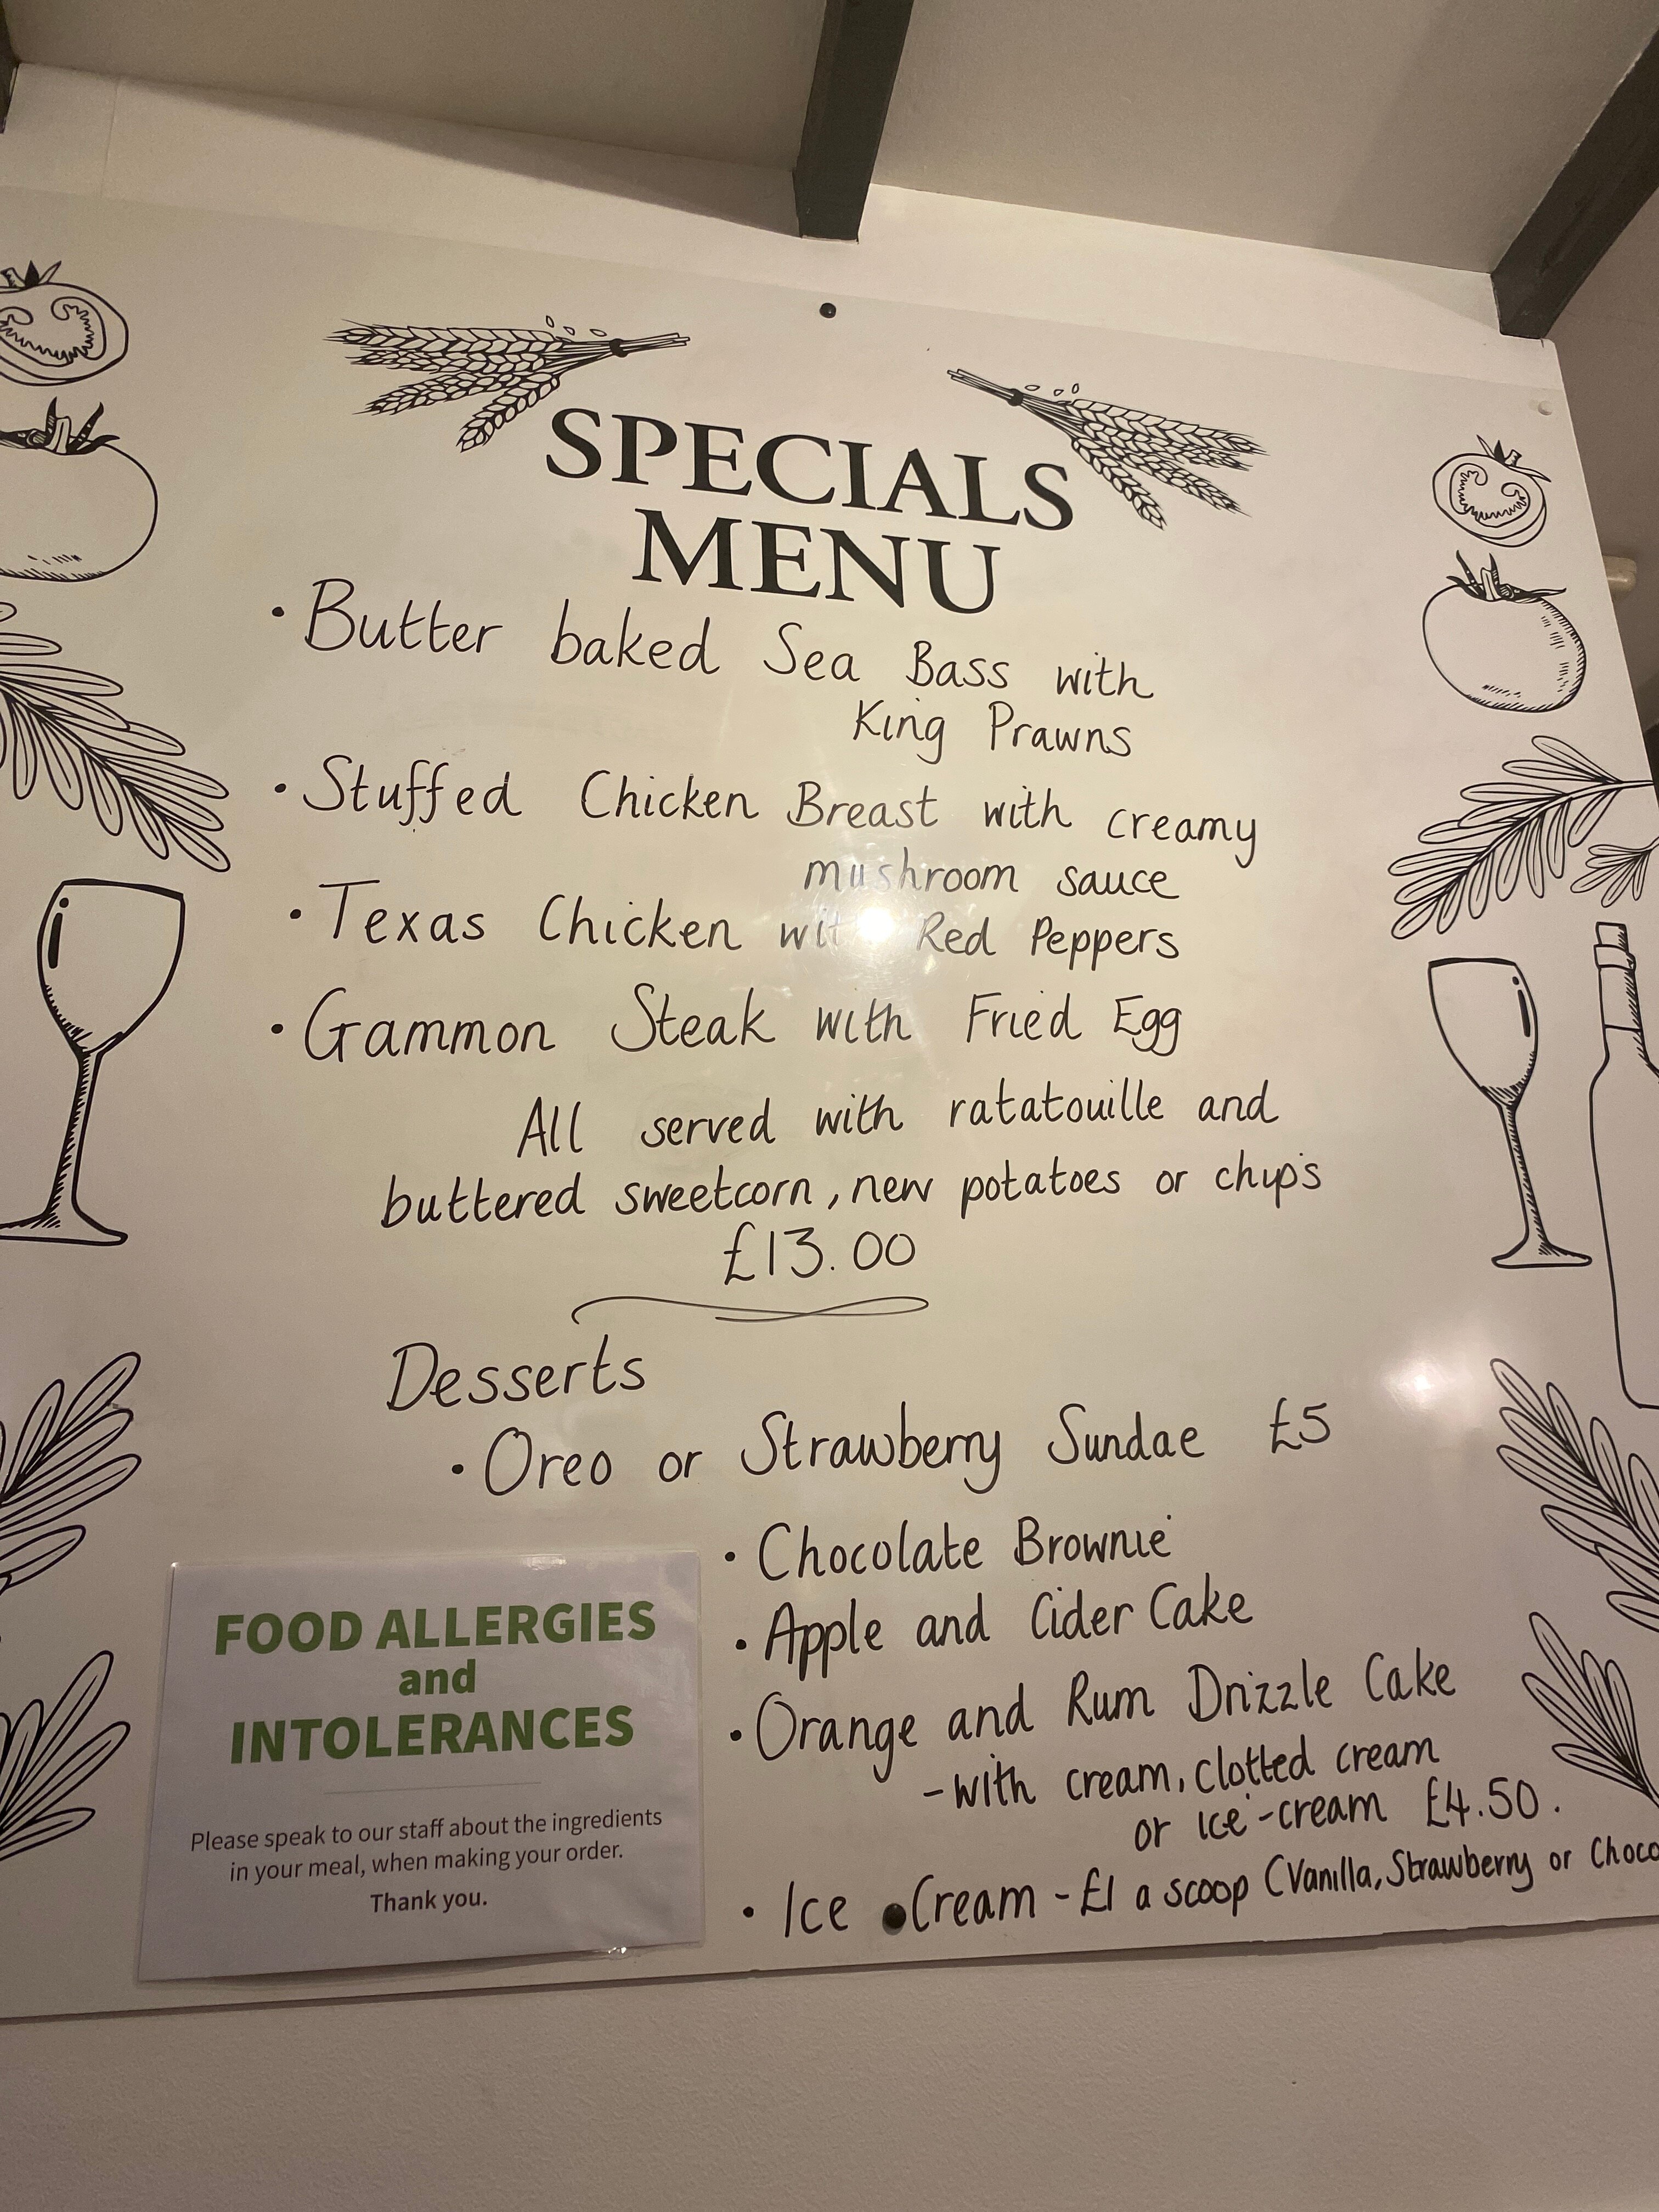 SPECIALS
MENU
• Butter baked Sea Bass with
King Prawns
• Stuffed Chicken Breast with creamy
mushroom sauce
• Texas Chicken with Red Peppers
• Gammon Steak with Fried Egg
All served with ratatouille and
buttered sweetcorn, new potatoes or chips
£13.00
Desserts
• Oreo or Strawberry Sundae £5
• Chocolate Brownie
• Apple and Cider Cake
• Orange and Rum Drizzle Cake
- with cream, clotted cream
or ice-cream £4.50.
• Ice Cream - £1 a scoop (Vanilla, Strawberry or Choco
FOOD ALLERGIES
and
INTOLERANCES
Please speak to our staff about the ingredients
in your meal, when making your order.
Thank you.